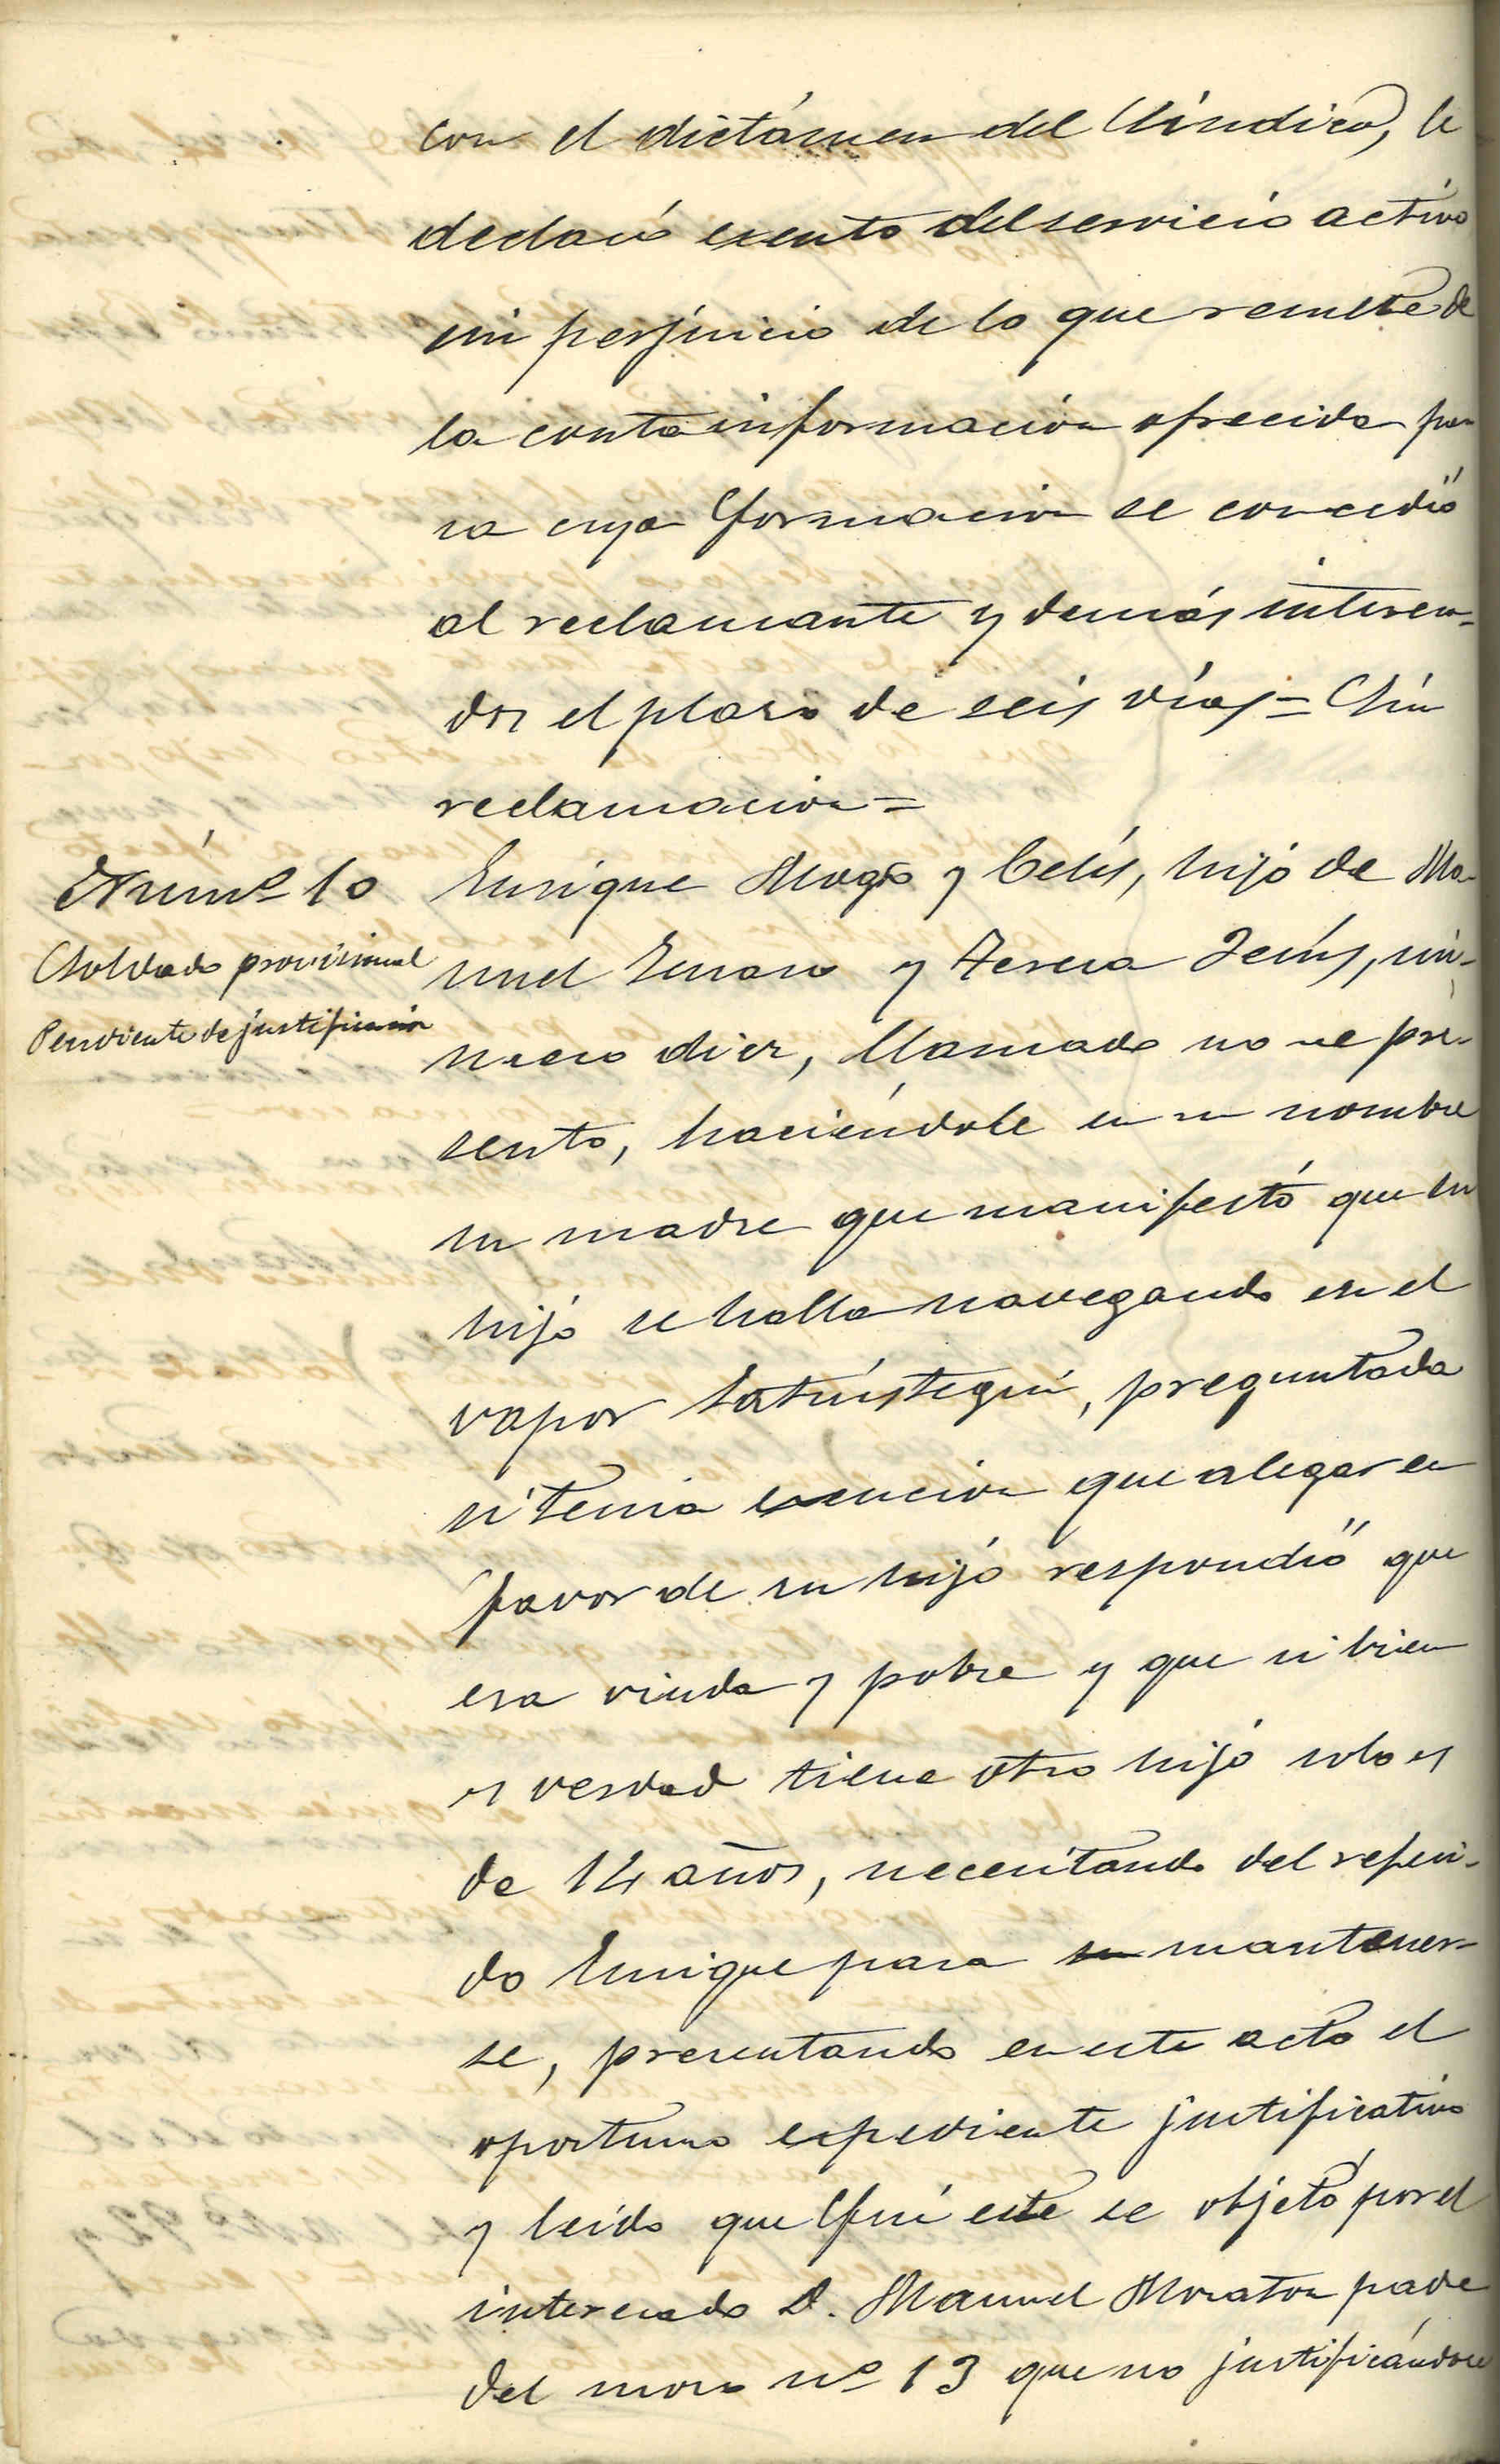 con el dictámen del Síndico, le
declaró exento del servicio activo
sin perjuicio de lo que resulte de
la containformación ofrecida pa
ra cuya formacion se concedió
al reclamante y demás interesa-
dos el plazo de seis días = Sin
reclamacion =
Núm.º 10
Soldado provisional
Pendiente de justificacion
Enrique y Celis, hijo de Ma-
nuel Genaro y Teresa Jesús, nú-
mero diez, llamado no se pre-
sentó, haciéndole en su nombre
su madre que manifestó que su
hijo se halla navegando en el
vapor Satrústegui, preguntada
si tenia exencion que alegar en
favor de su hijo respondió que
era viuda y pobre y que si bien
es verdad tiene otro hijo solo es
de 14 años, necesitando del referi-
do Enrique para su mantener-
se, presentando en este acto el
oportuno espediente justificativo
y leido que fué este se objetó por el
interesado D. Manuel Moraton padre
del mozo nº 13 que no justificándose